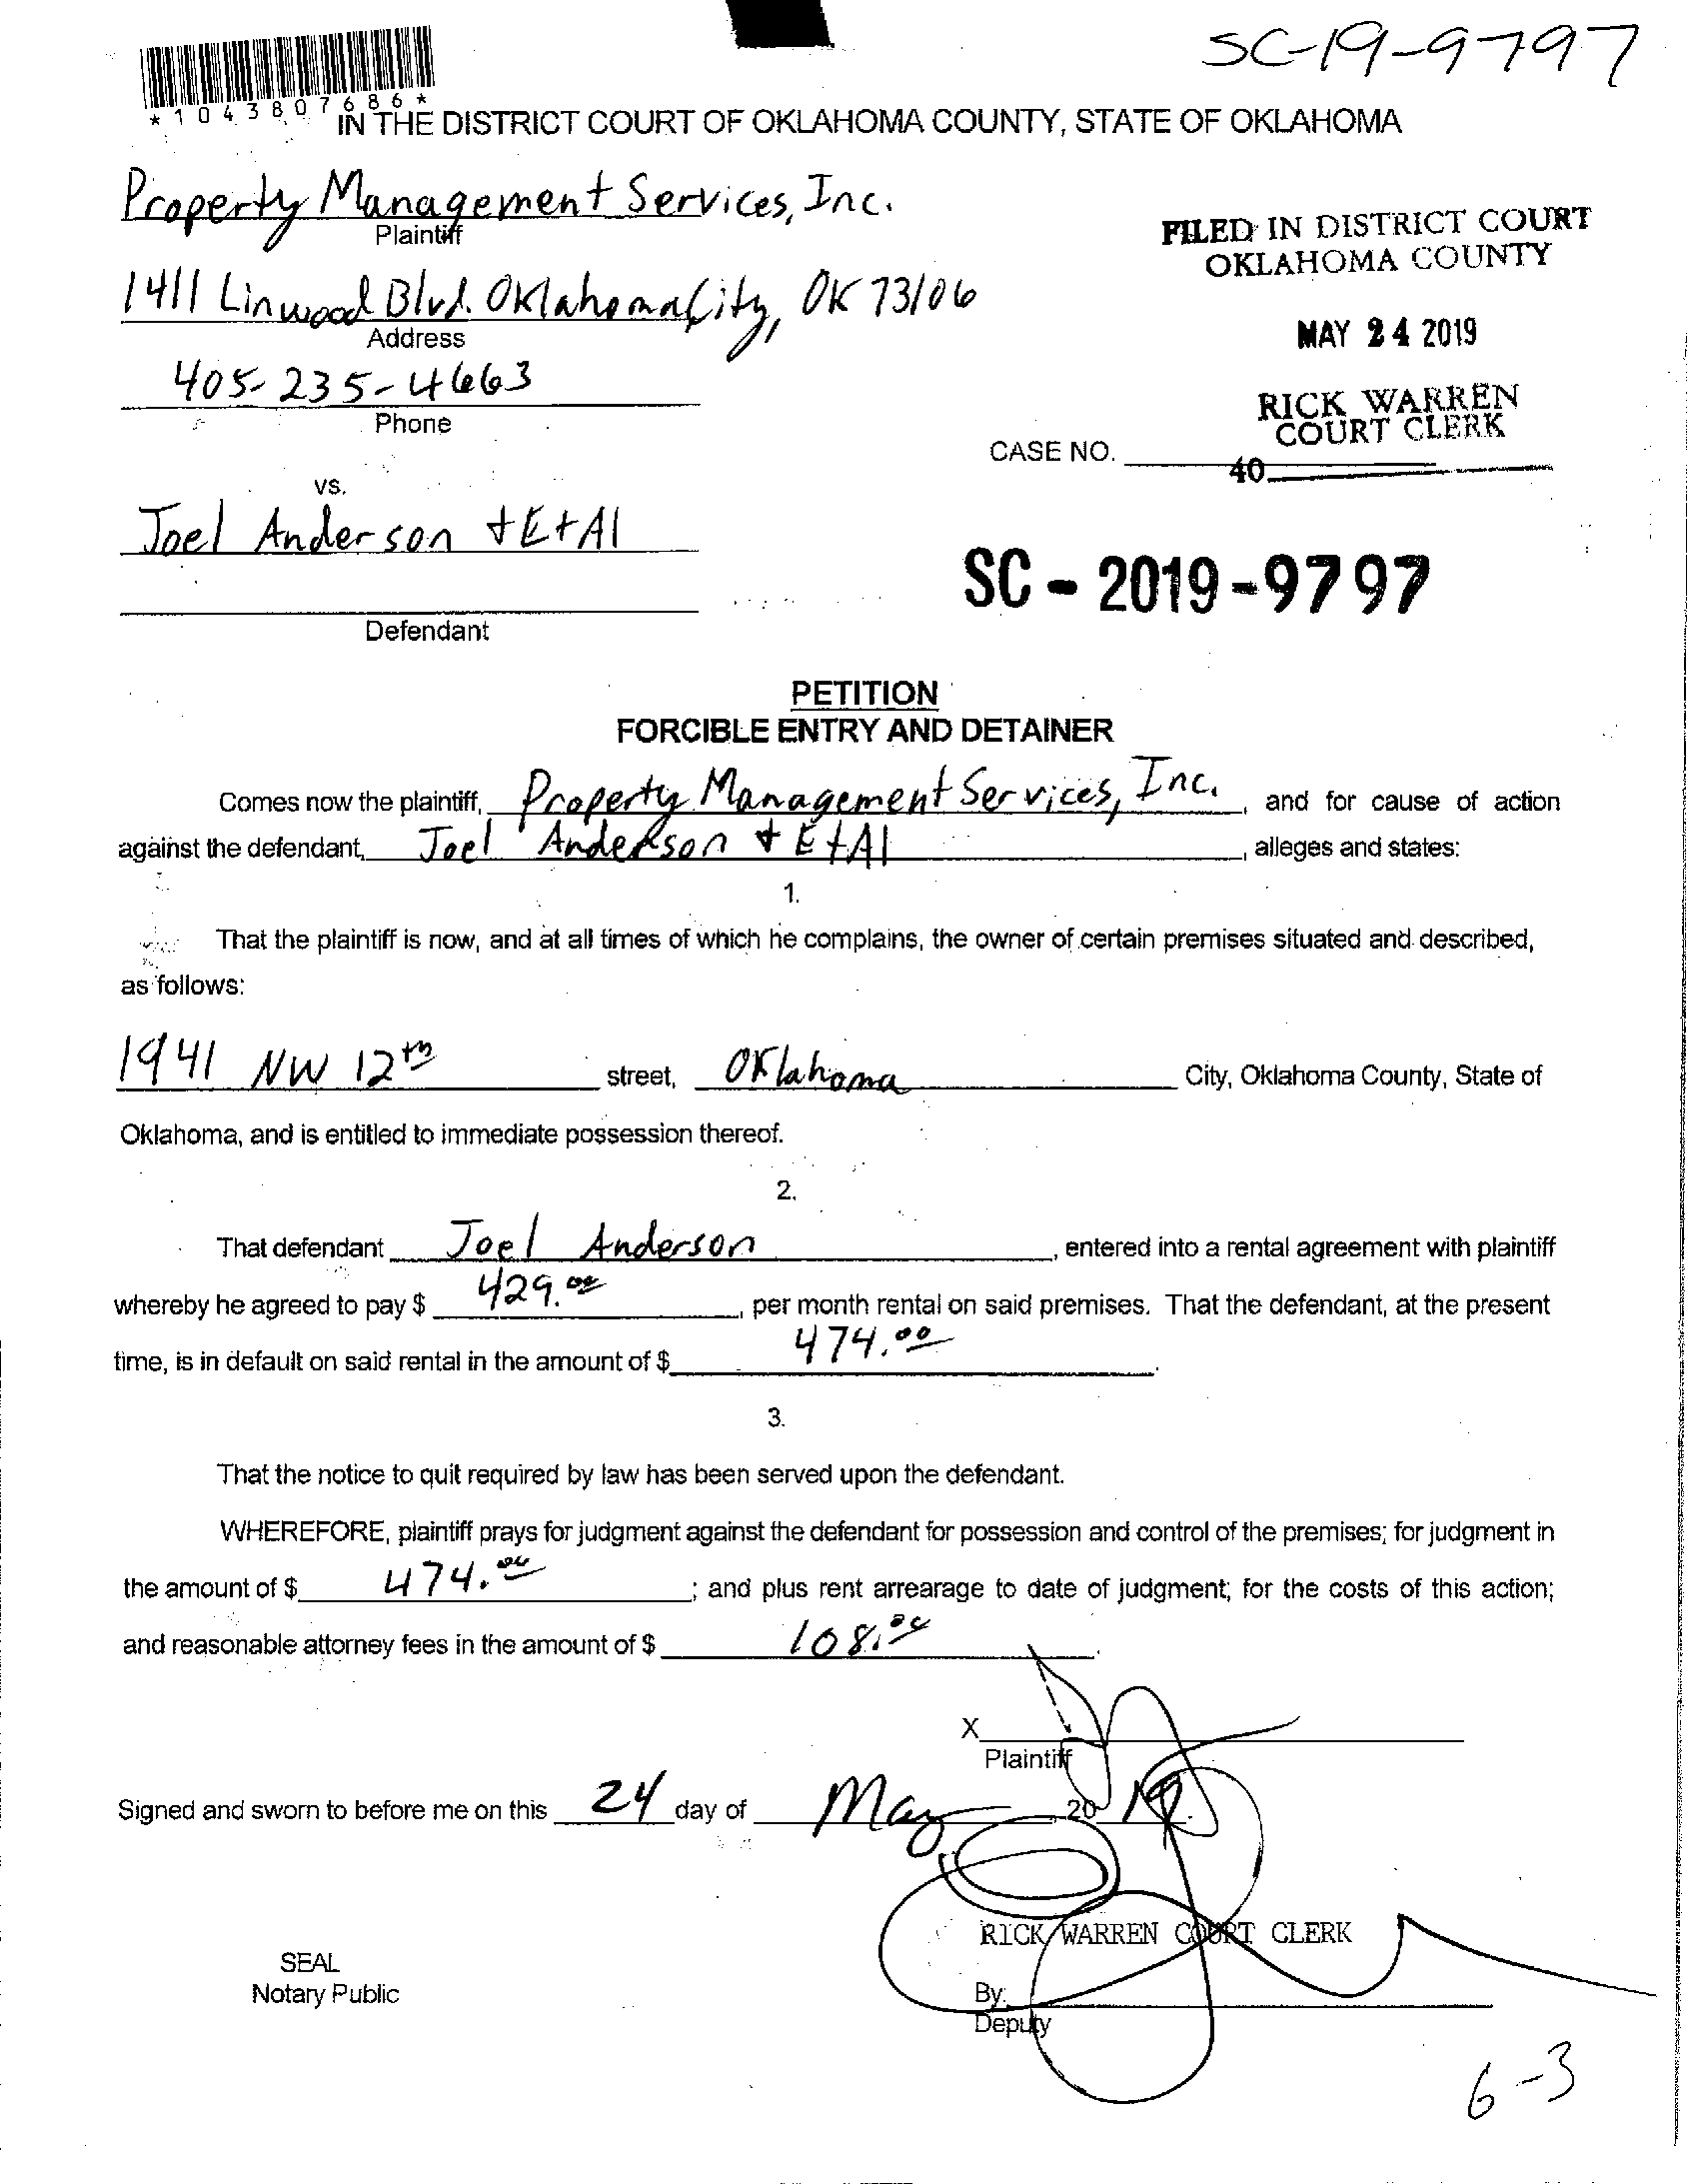 SC-19-9797
*1043807686*
IN THE DISTRICT COURT OF OKLAHOMA COUNTY, STATE OF OKLAHOMA
Property Management Services, Inc.
Plaintiff
FILED IN DISTRICT COURT
OKLAHOMA COUNTY
1411 Linwood Blvd. Oklahoma City, OK 73106
Address
MAY 24 2019
405-235-4663
Phone
RICK WARREN
COURT CLERK
CASE NO.
40
vs.
Joel Anderson + Et Al
SC - 2019-9797
Defendant
PETITION
FORCIBLE ENTRY AND DETAINER
Comes now the plaintiff, Property Management Services, Inc. , and for cause of action
against the defendant, Joel Anderson + Et Al , alleges and states:
1.
That the plaintiff is now, and at all times of which he complains, the owner of certain premises situated and described,
as follows:
1941 NW 12th street, Oklahoma City, Oklahoma County, State of
Oklahoma, and is entitled to immediate possession thereof.
2.
That defendant Joel Anderson , entered into a rental agreement with plaintiff
whereby he agreed to pay $ 429.00 , per month rental on said premises. That the defendant, at the present
time, is in default on said rental in the amount of $ 474.00 .
3.
That the notice to quit required by law has been served upon the defendant.
WHEREFORE, plaintiff prays for judgment against the defendant for possession and control of the premises; for judgment in
the amount of $ 474.00 ; and plus rent arrearage to date of judgment; for the costs of this action;
and reasonable attorney fees in the amount of $ 108.00 .
X
Plaintiff
Signed and sworn to before me on this 24 day of May , 20 19.
RICK WARREN COURT CLERK
SEAL
Notary Public
By:
Deputy
6-3